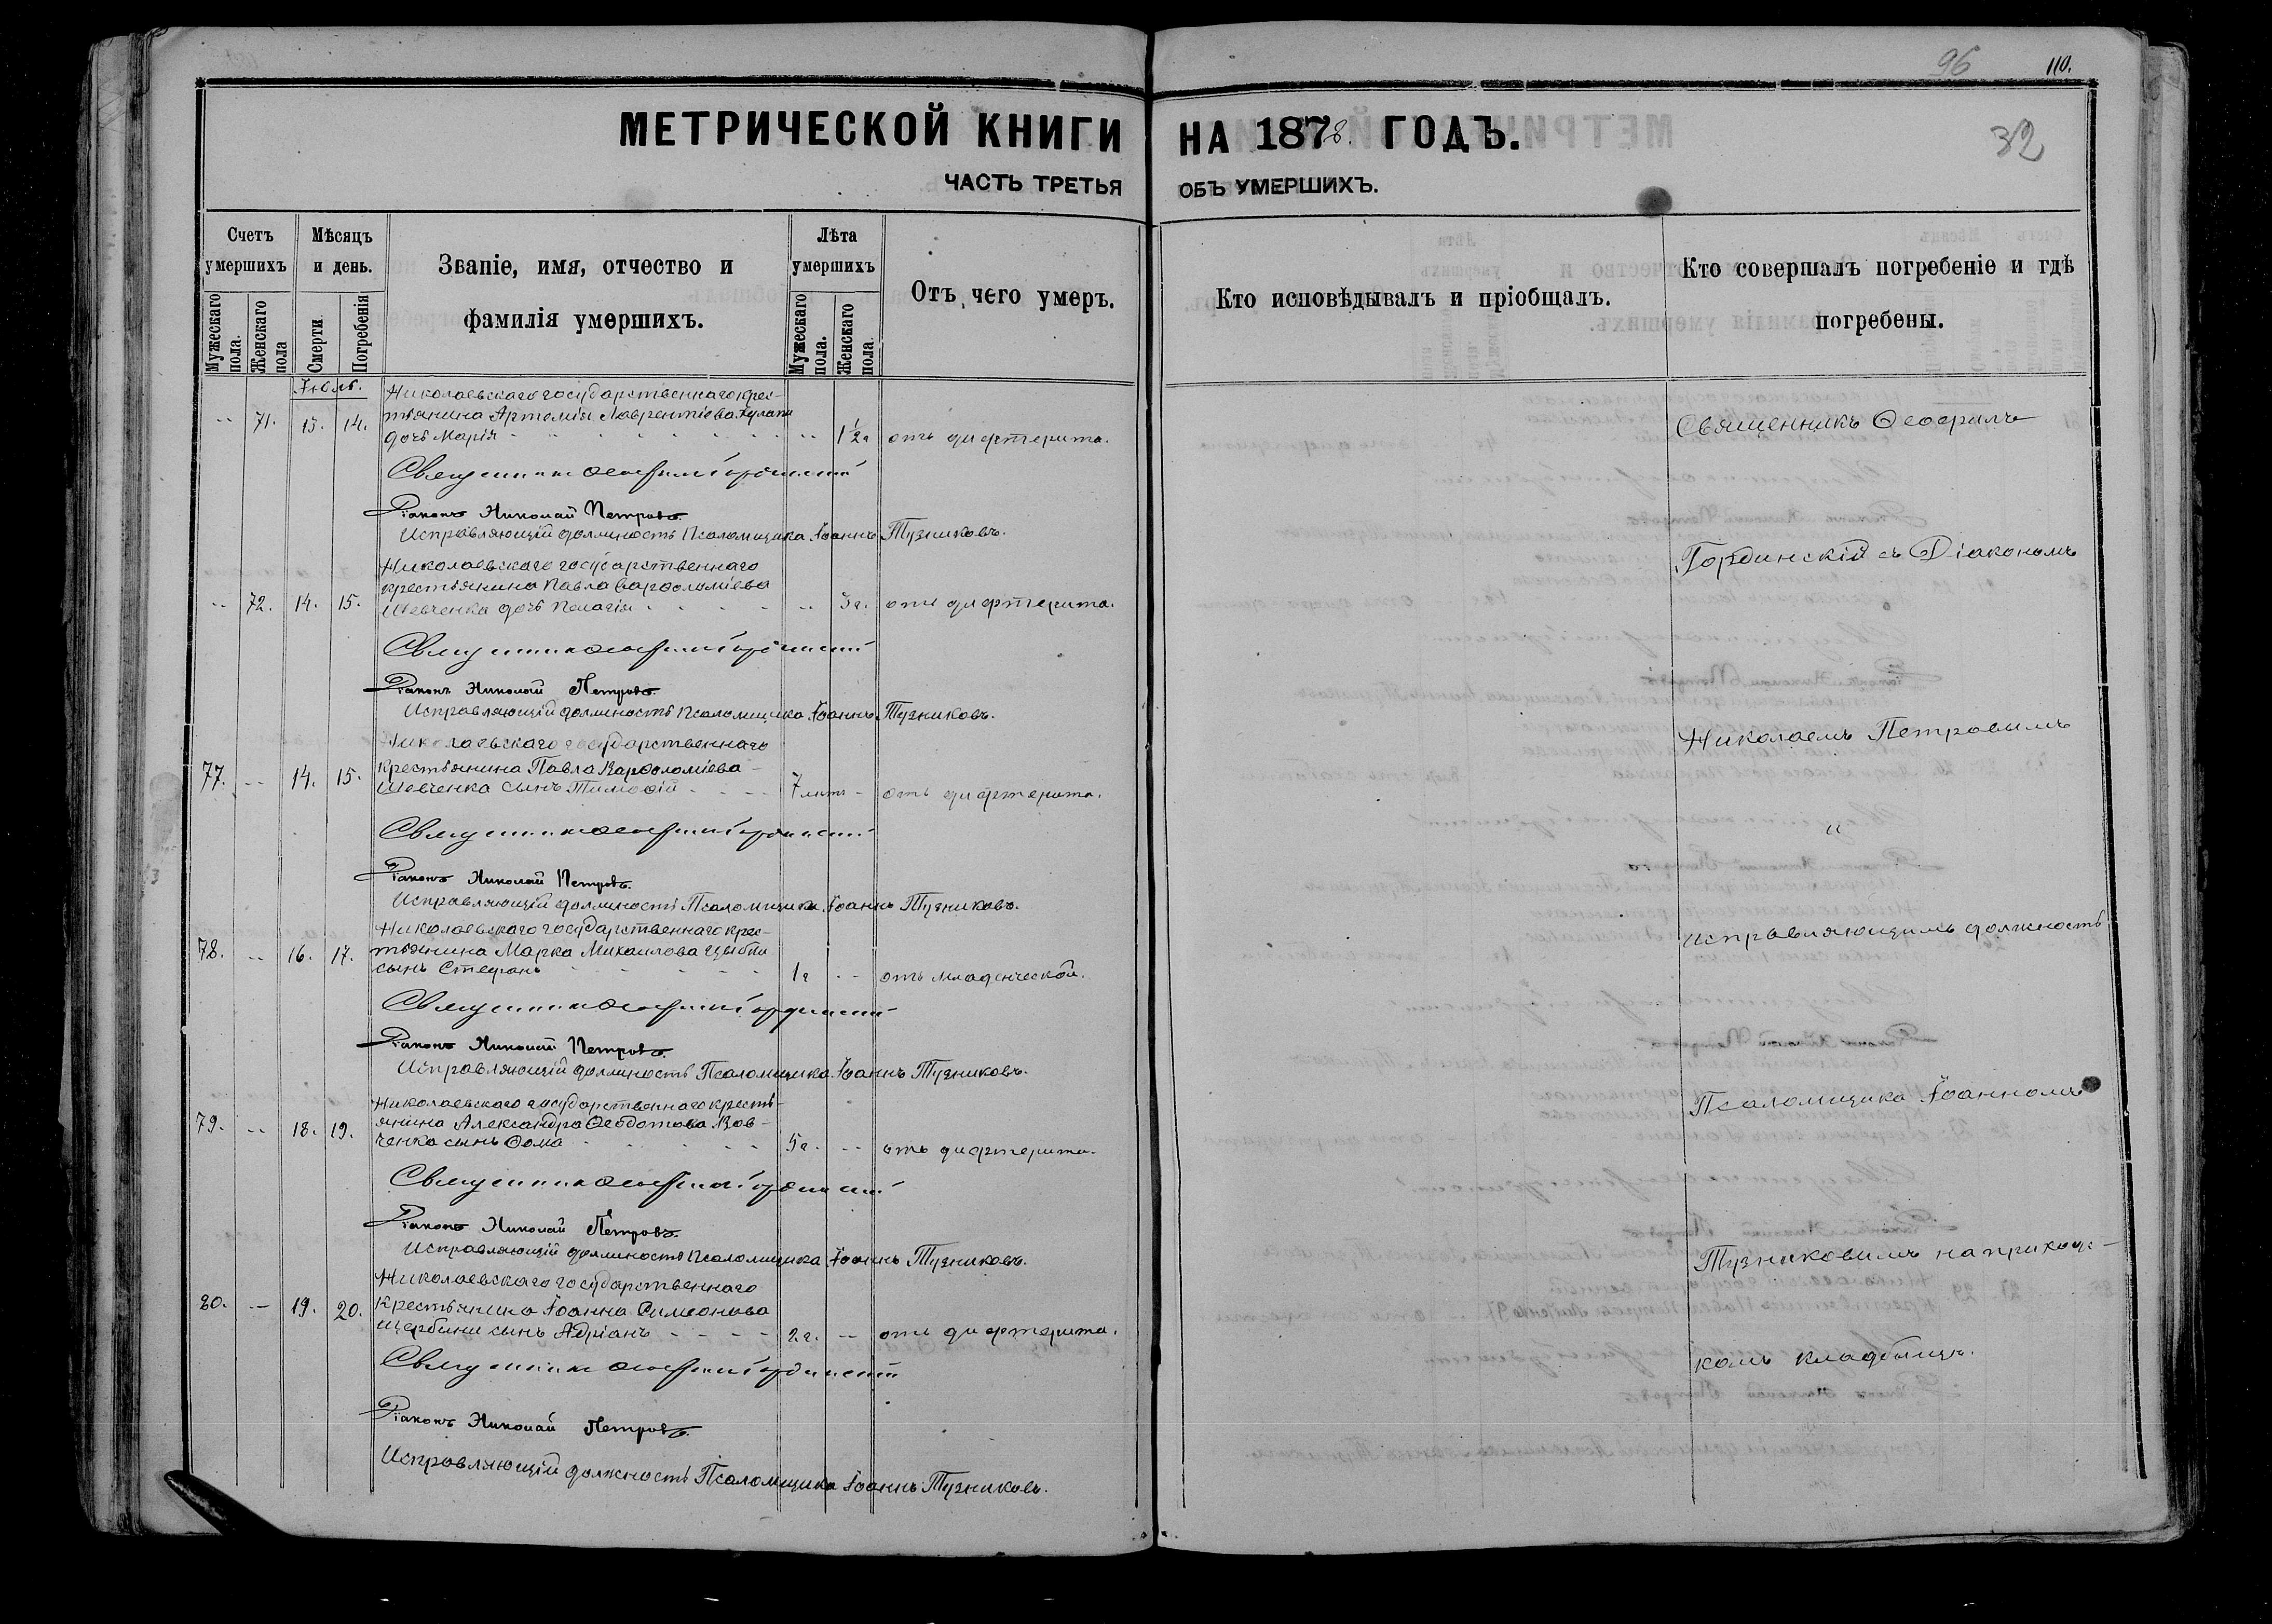 96
110.
32
МЕТРИЧЕСКОЙ КНИГИ НА 1878. ГОДЪ.
ЧАСТЬ ТРЕТЬЯ ОБЪ УМЕРШИХЪ.
Счетъ умершихъ
Мужескаго пола.
Женскаго пола
Мѣсяцъ и день.
Смерти
Погребенія
Званіе, имя, отчество и фамилія умершихъ.
Лѣта умершихъ
Мужескаго пола.
Женскаго пола.
Отъ чего умеръ.
Кто исповѣдывалъ и пріобщалъ.
Кто совершалъ погребеніе и гдѣ погребены.
Николаевскаго государственнаго крес-
71. 13. 14. тьянина Артемія Лаврентіева
дочь Марія 1½ г. отъ дифтерита.
Священникъ Ѳеофилъ Гординскій
Діаконъ Николай Петровъ.
Исправляющій должность Псаломщика Іоаннъ Тузниковъ.
Николаевскаго государственнаго
крестьянина Павла Варѳоломіева
72. 14. 15. Шевченка дочь Пелагія 3 г. отъ дифтерита.
Священникъ Ѳеофилъ Гординскій
Діаконъ Николай Петровъ.
Исправляющій должность Псаломщика Іоаннъ Тузниковъ.
Николаевскаго государственнаго
77. 14. 15. крестьянина Павла Варѳоломіева
Шевченка сынъ Тимоѳій 7 лѣтъ отъ дифтерита.
Священникъ Ѳеофилъ Гординскій
Діаконъ Николай Петровъ.
Исправляющій должность Псаломщика Іоаннъ Тузниковъ.
Николаевскаго государственнаго крес-
78. 16. 17. тьянина Марка Михаилова Цыбли
сынъ Стефанъ 1 г. отъ младенческой.
Священникъ Ѳеофилъ Гординскій
Діаконъ Николай Петровъ.
Исправляющій должность Псаломщика Іоаннъ Тузниковъ.
Николаевскаго государственнаго кресть-
79. 18. 19. янина Александра Ѳеодотова Вов-
ченка сынъ Ѳома 5 г. отъ дифтерита.
Священникъ Ѳеофилъ Гординскій
Діаконъ Николай Петровъ.
Исправляющій должность Псаломщика Іоаннъ Тузниковъ.
Николаевскаго государственнаго
80. 19. 20. крестьянина Іоанна Симеонова
Щербини сынъ Адріанъ 2 г. отъ дифтерита.
Священникъ Ѳеофилъ Гординскій
Діаконъ Николай Петровъ.
Исправляющій должность Псаломщика Іоаннъ Тузниковъ.
Священникъ Ѳеофилъ
Гординскій съ Діакономъ
Николаемъ Петровымъ
и
исправляющимъ должность
Псаломщика Іоанномъ
Тузниковимъ на приход-
комъ кладбищѣ.